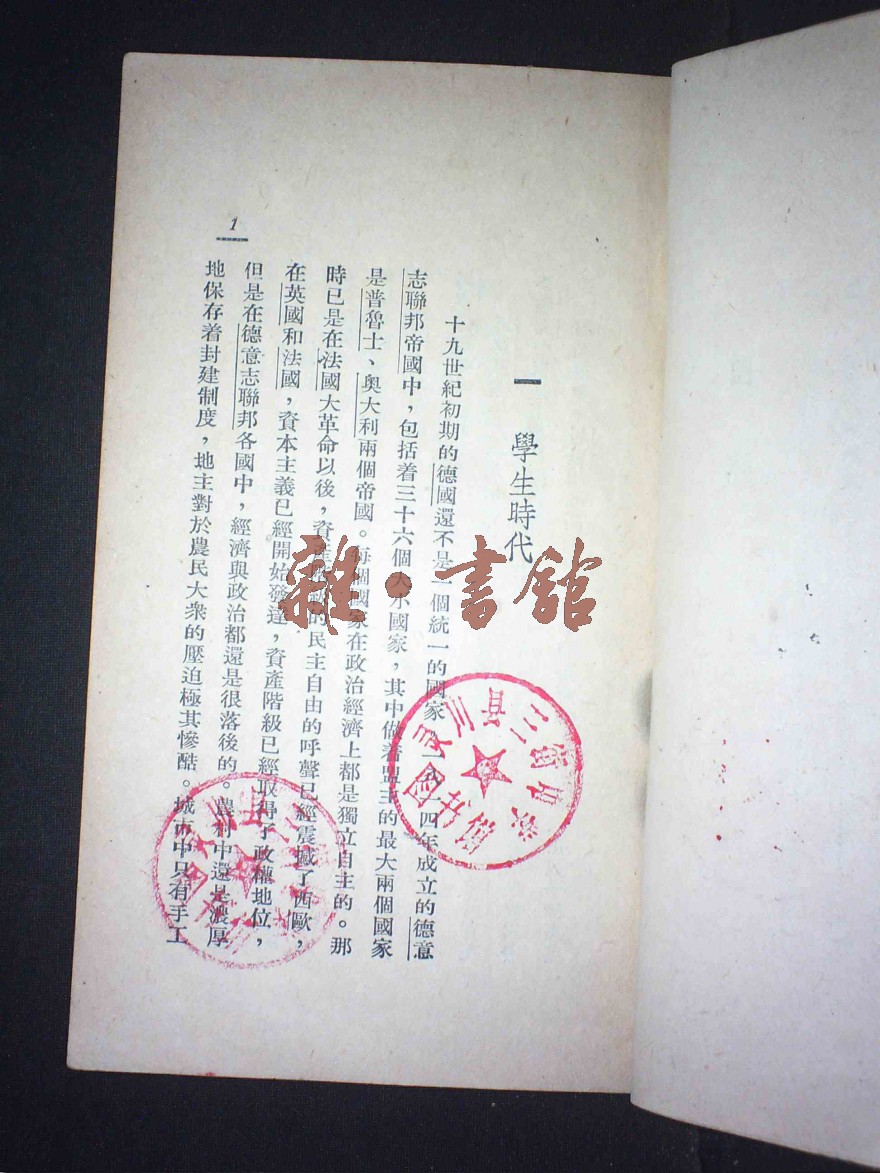 一 學生時代
十九世紀初期的德國還不是一個統一的國家 四年成立的德意
志聯邦帝國中，包括着三十六個大小國家，其中做着盟主的最大兩個國家
是普魯士、奧大利兩個帝國。每個國家在政治經濟上都是獨立自主的。那
時已是在法國大革命以後，資產階級的民主自由的呼聲已經震撼了西歐，
在英國和法國，資本主義已經開始發達，資產階級已經取得了政權地位，
但是在德意志聯邦各國中，經濟與政治都還是很落後的。農村中還是濃厚
地保存着封建制度，地主對於農民大衆的壓迫極其慘酷。城市中只有手工
1
雜·書館